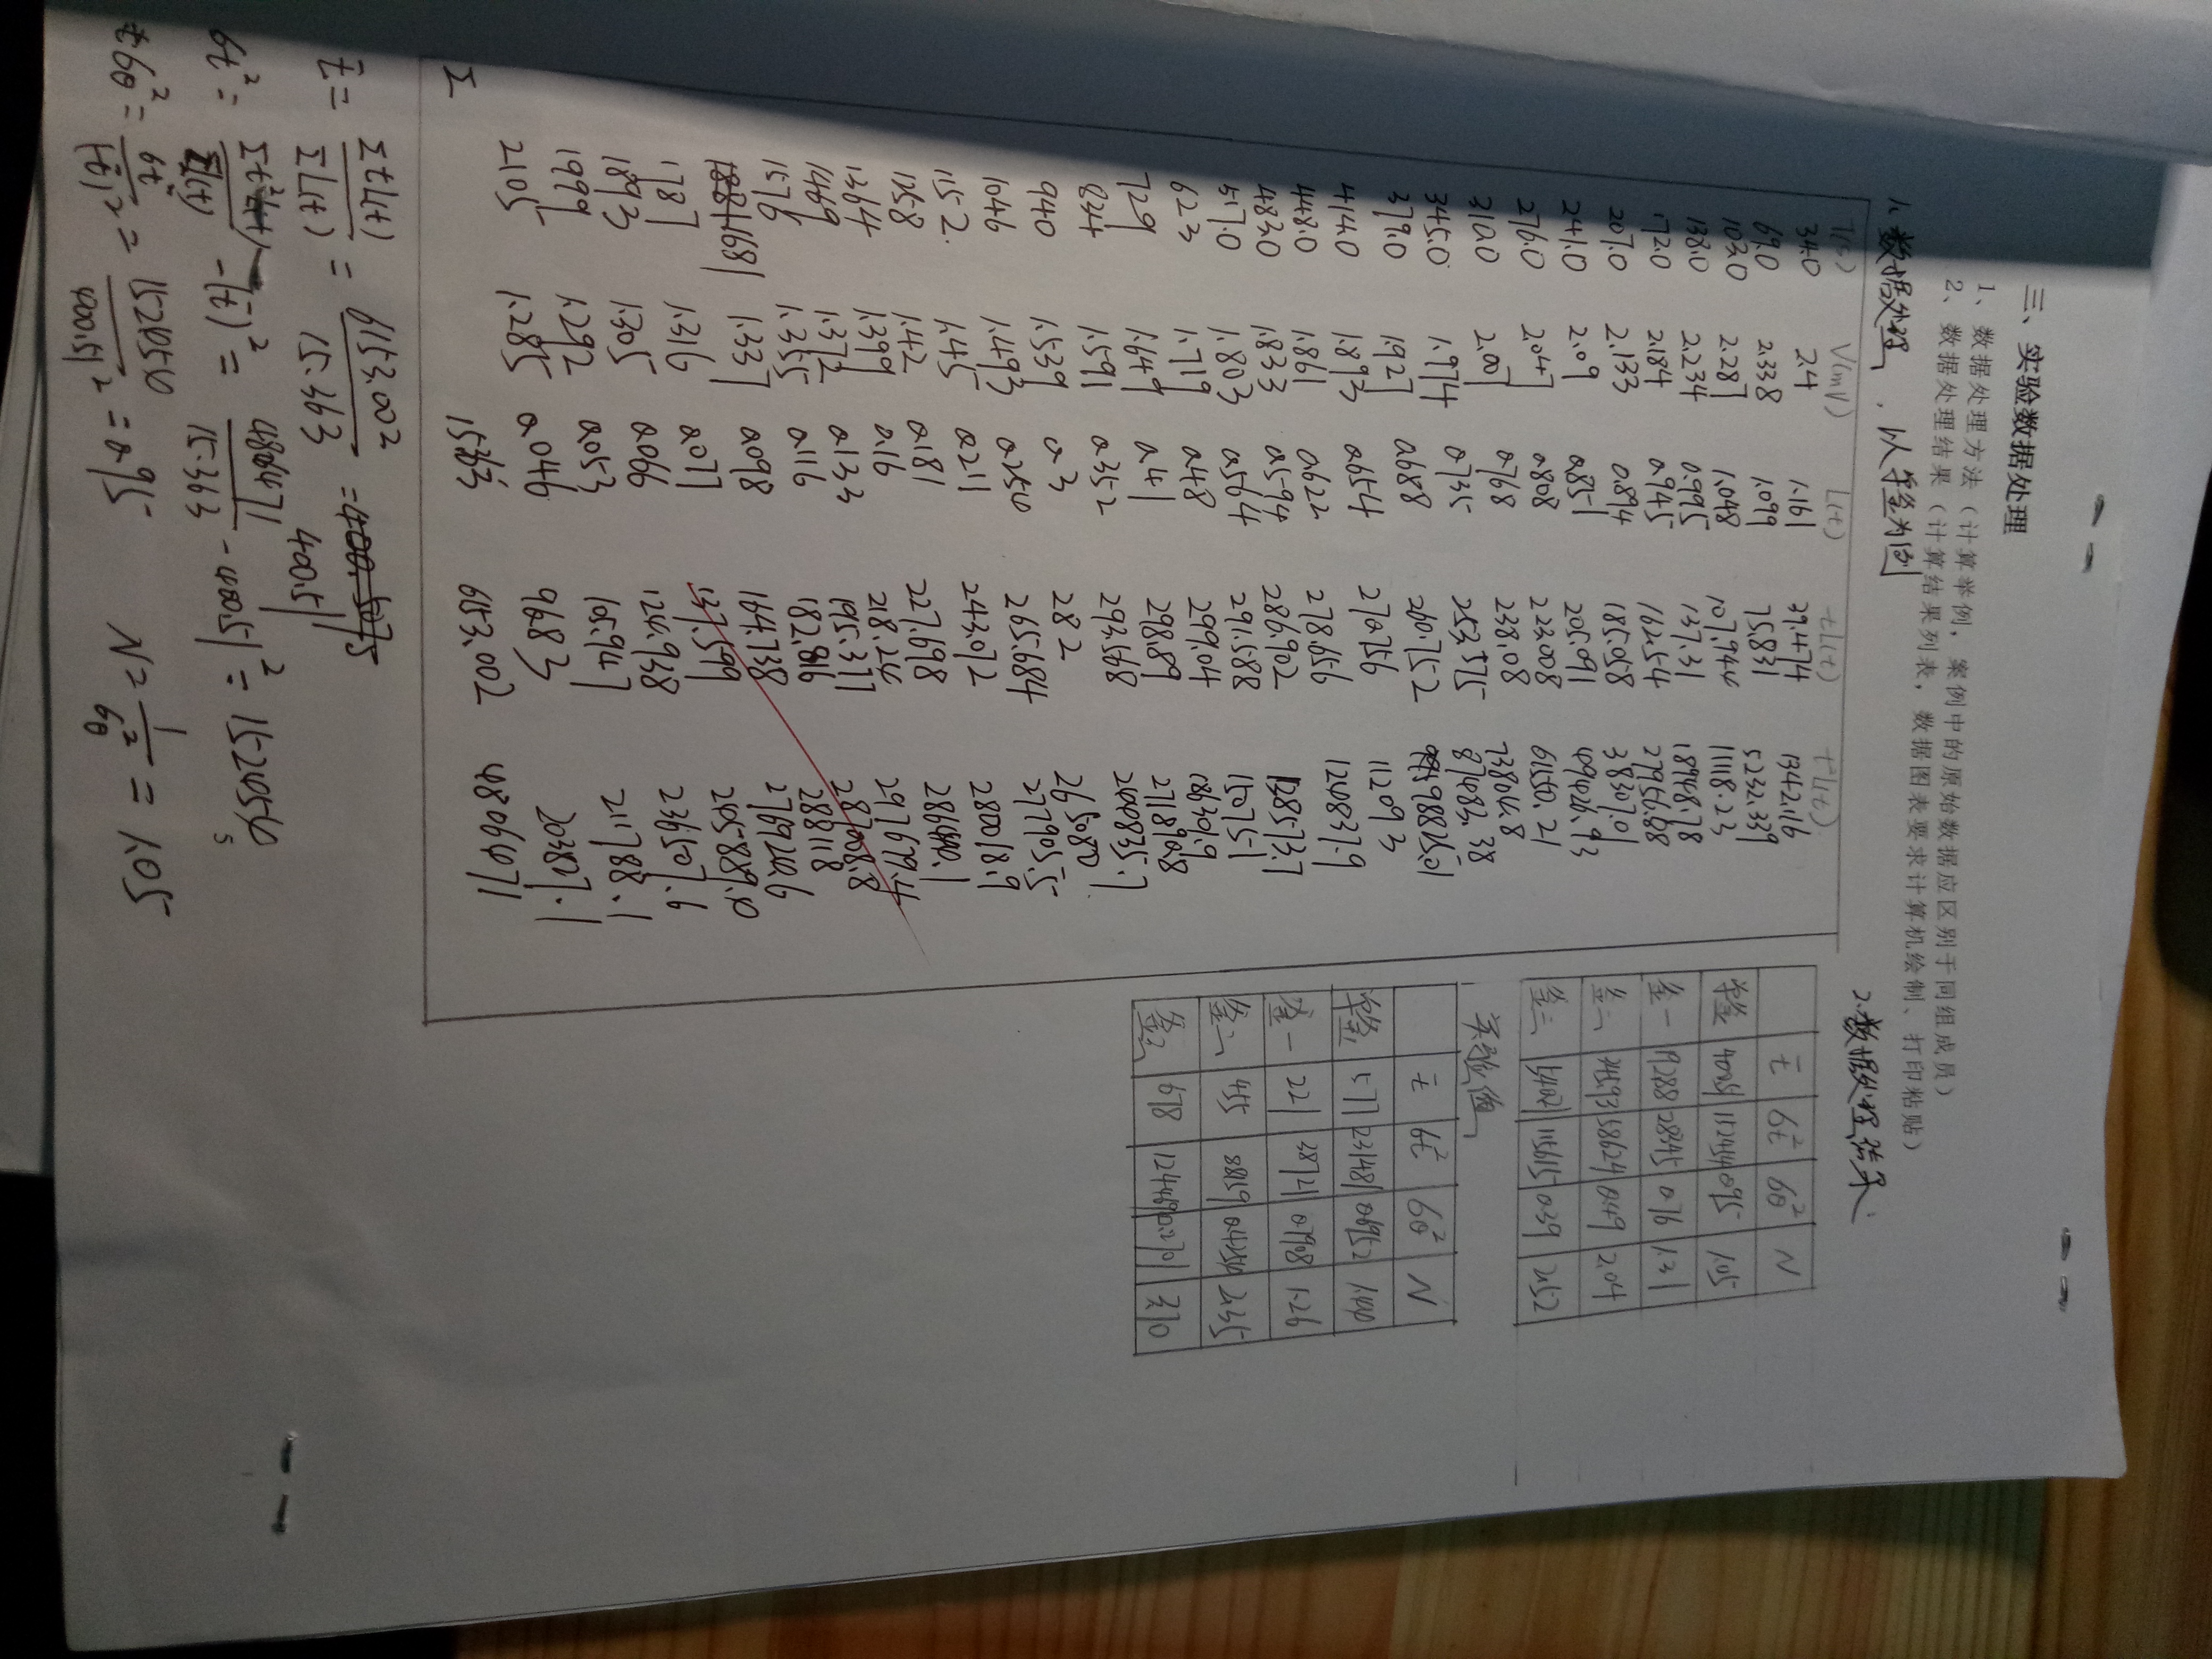 三、实验数据处理
1、数据处理方法（计算举例，案例中的原始数据应区别于同组成员）
2、数据处理结果（计算结果列表，数据图表要求计算机绘制、打印粘贴）
1.数据处理，以单釜为例
T(s) V(mV) L(t) tL(t) t²L(t)
34.0 2.4 1.161 39.474 1342.116
69.0 2.338 1.099 75.831 5232.339
103.0 2.287 1.048 107.944 11118.23
138.0 2.234 0.995 137.31 18948.78
172.0 2.184 0.945 162.54 27956.88
207.0 2.133 0.894 185.058 38307.01
241.0 2.09 0.851 205.091 49426.93
276.0 2.047 0.808 223.008 61550.21
310.0 2.007 0.768 238.08 73804.8
345.0 1.974 0.735 253.575 87483.38
379.0 1.927 0.688 260.752 98825.01
414.0 1.893 0.654 270.756 112093
448.0 1.861 0.622 278.656 124837.9
483.0 1.833 0.594 286.902 138573.7
517.0 1.803 0.564 291.588 150751
623 1.719 0.48 299.04 186301.9
729 1.649 0.41 298.89 217890.8
834 1.591 0.352 293.568 244835.7
940 1.539 0.3 282 265080
1046 1.493 0.254 265.684 277905.5
1152 1.45 0.211 243.072 280018.9
1258 1.442 0.181 227.698 286440.1
1364 1.399 0.16 218.24 297679.4
1469 1.372 0.133 195.377 287008.8
1576 1.355 0.116 182.816 288118
1681 1.337 0.098 164.738 276924.6
1787 1.316 0.077 137.599 245889.0
1893 1.305 0.066 124.938 236507.6
1999 1.292 0.053 105.947 211788.1
2105 1.285 0.046 96.83 203827.1
Σ 15.363 6153.002 4806471
t̄ = ΣtL(t) / ΣL(t) = 6153.002 / 15.363 = 400.51
6t² = Σt²L(t) / ΣL(t) - (t̄)² = 4806471 / 15.363 - 400.51² = 152450
6θ² = 6t² / (t̄)² = 152450 / 400.51² = 0.95 N = 1 / 6θ² = 1.05
2.数据处理结果:
t̄ 6t² 6θ² N
单釜 400.51 152440 0.95 1.05
釜一 192.88 28345 0.76 1.31
釜二 58624 0.49 2.04
釜三 0.39 2.52
实验值
t̄ 6t² 6θ² N
单釜 577 23148 0.6952 1.440
釜一 221 38721 0.7908 1.26
釜二 455 88159 2.35
釜三 678 3.70